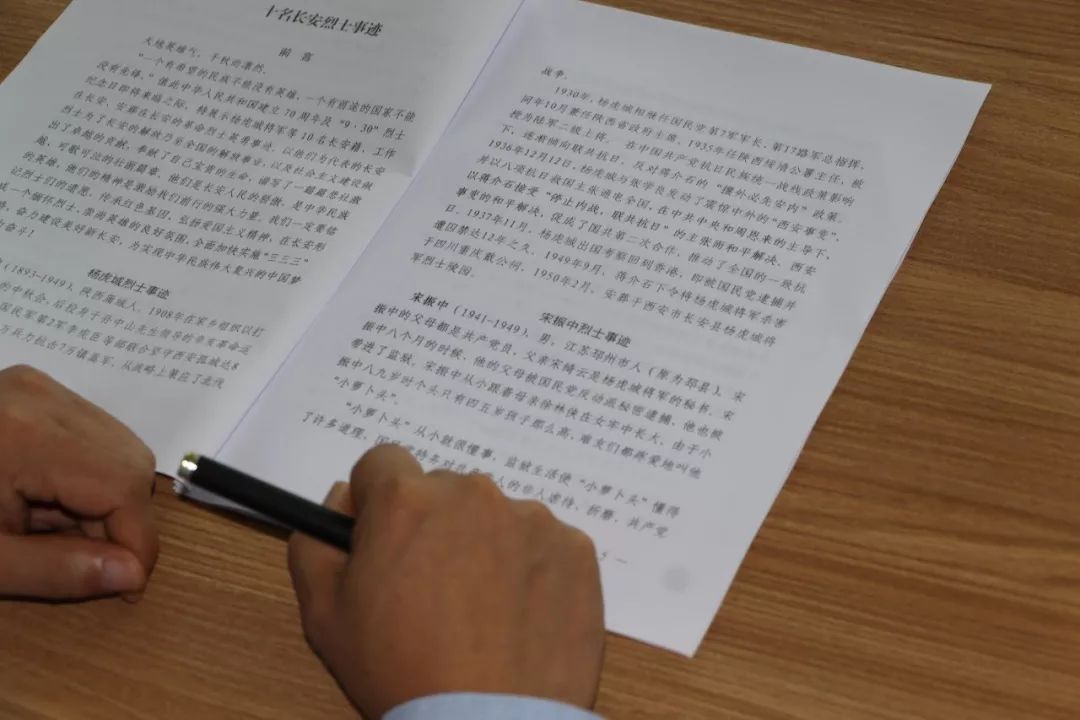 十名长安烈士事迹
前 言
天地英雄气，千秋尚凛然。
“一个有希望的民族不能没有英雄，一个有前途的国家不能
没有先锋。”值此中华人民共和国建立70周年及“9·30”烈士
纪念日即将来临之际，特展示杨虎城将军等10名长安籍、工作
在长安、安葬在长安的革命烈士英勇事迹，以他们为代表的长安
烈士为了长安的解放乃至全国的解放事业，以及社会主义建设做
出了卓越的贡献，奉献了自己宝贵的生命，谱写了一篇篇悲壮激
越、可歌可泣的壮丽篇章。他们是长安人民的骄傲，是中华民族
的英雄，他们的精神是激励我们前行的强大力量。我们一定要铭
记烈士们的遗愿，传承红色基因，弘扬爱国主义精神，在长安形
成一个缅怀烈士，崇尚英雄的良好氛围，全面加快实施“三三三”
，奋力建设美好新长安，为实现中华民族伟大复兴的中国梦
奋斗！
杨虎城烈士事迹
（1893-1949），陕西蒲城人，1908年在家乡组织以打
的中秋会，后投身于孙中山先生领导的辛亥革命运
国民军第2军李虎臣等部联合坚守西安孤城达8
万兵力抗击7万镇嵩军，从战略上策应了北伐
战争。
1930年，杨虎城相继任国民党第7军军长、第17路军总指挥，
同年10月兼任陕西省政府主席，1935年任陕西绥靖公署主任，被
授为陆军二级上将。在中国共产党抗日民族统一战线政策影响
下，逐渐倾向联共抗日，反对蒋介石的“攘外必先安内”政策。
1936年12月12日，杨虎城与张学良发动了震惊中外的“西安事变”，
并以八项抗日救国主张通电全国，在中共中央和周恩来的主导下，
以蒋介石接受“停止内战，联共抗日”的主张而和平解决。西安
事变的和平解决，促成了国共第二次合作，推动了全国的一致抗
日。1937年11月，杨虎城出国考察回到香港，即被国民党逮捕并
遭囚禁达12年之久。1949年9月，蒋介石下令将杨虎城将军杀害
于四川重庆戴公祠。1950年2月，安葬于西安市长安县杨虎城将
军烈士陵园。
宋振中烈士事迹
宋振中（1941-1949），男，江苏邳州市人（原为邳县）。宋
振中的父母都是共产党员，父亲宋绮云是杨虎城将军的秘书。宋
振中八个月的时候，他的父母被国民党反动派秘密逮捕，他也被
带进了监狱。宋振中从小跟着母亲徐林侠在女牢中长大，由于小
振中八九岁时个头只有四五岁孩子那么高，难友们都疼爱地叫他
“小萝卜头”。
“小萝卜头”从小就很懂事，监狱生活使“小萝卜头”懂得
了许多道理，国民党特务对共产党人的非人虐待、折磨，共产党
5 —